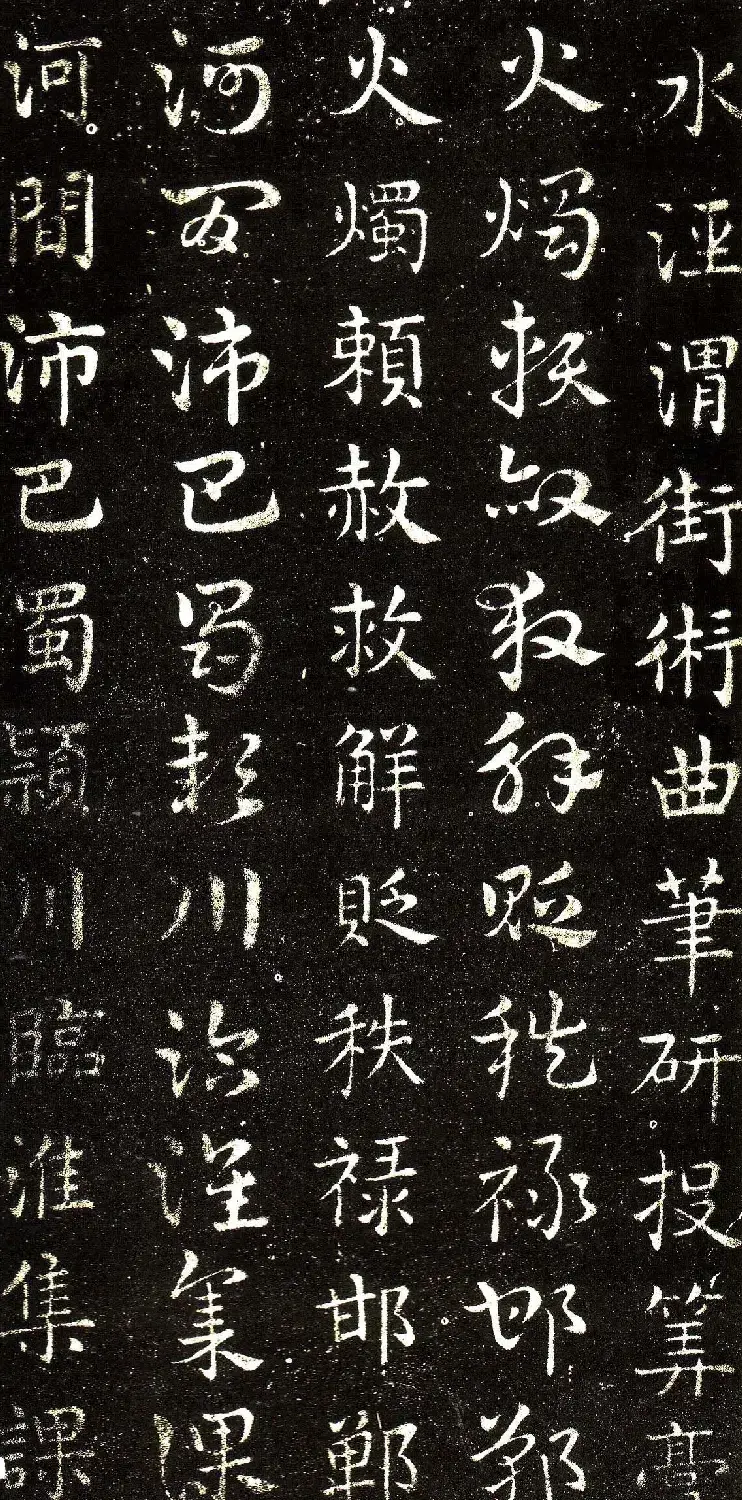 水涇渭街術曲筆研投筭亭
火燭頼赦救解貶秩禄邯鄲
火燭頼赦救解貶秩禄邯鄲
河間沛巴蜀潁川臨淮集課
河間沛巴蜀潁川臨淮集課